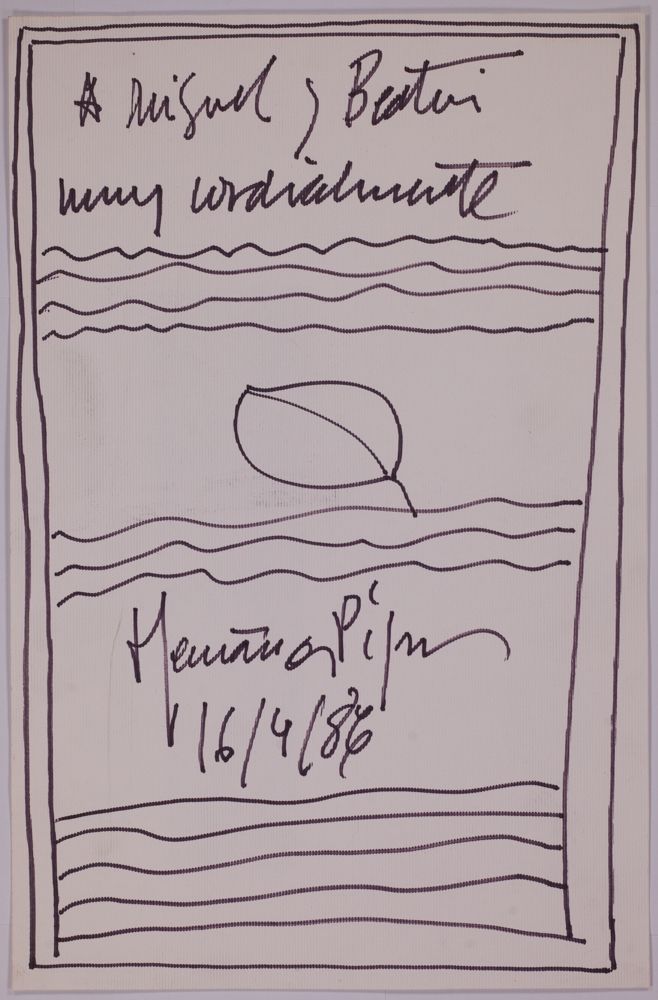 A Miguel y Beatriz
muy cordialmente
Hernández Pijuan
16/4/86